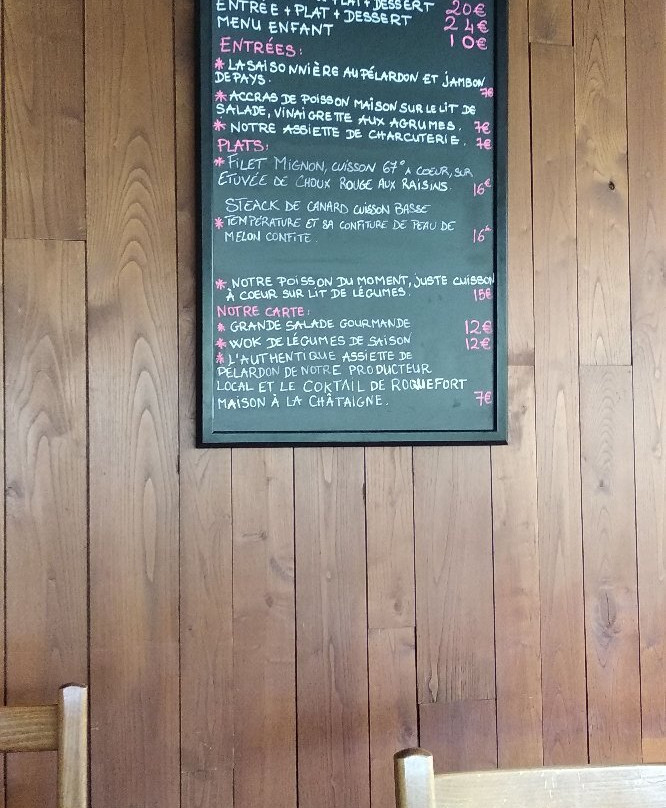 PLAT + DESSERT 20€
ENTRÉE + PLAT + DESSERT 24€
MENU ENFANT 10€
ENTRÉES:
* LA SAISONNIÈRE AU PÉLARDON ET JAMBON
DE PAYS. 7€
* ACCRAS DE POISSON MAISON SUR LE LIT DE
SALADE, VINAIGRETTE AUX AGRUMES. 7€
* NOTRE ASSIETTE DE CHARCUTERIE. 7€
PLATS:
* FILET MIGNON, CUISSON 67° A COEUR, SUR
ÉTUVÉE DE CHOUX ROUGE AUX RAISINS. 16€
STEACK DE CANARD CUISSON BASSE
* TEMPÉRATURE ET SA CONFITURE DE PEAU DE
MELON CONFITE. 16€
* NOTRE POISSON DU MOMENT, JUSTE CUISSON
À COEUR SUR LIT DE LÉGUMES. 15€
NOTRE CARTE:
* GRANDE SALADE GOURMANDE 12€
* WOK DE LÉGUMES DE SAISON 12€
* L'AUTHENTIQUE ASSIETTE DE
PÉLARDON DE NOTRE PRODUCTEUR
LOCAL ET LE COKTAIL DE ROQUEFORT
MAISON À LA CHÂTAIGNE. 7€